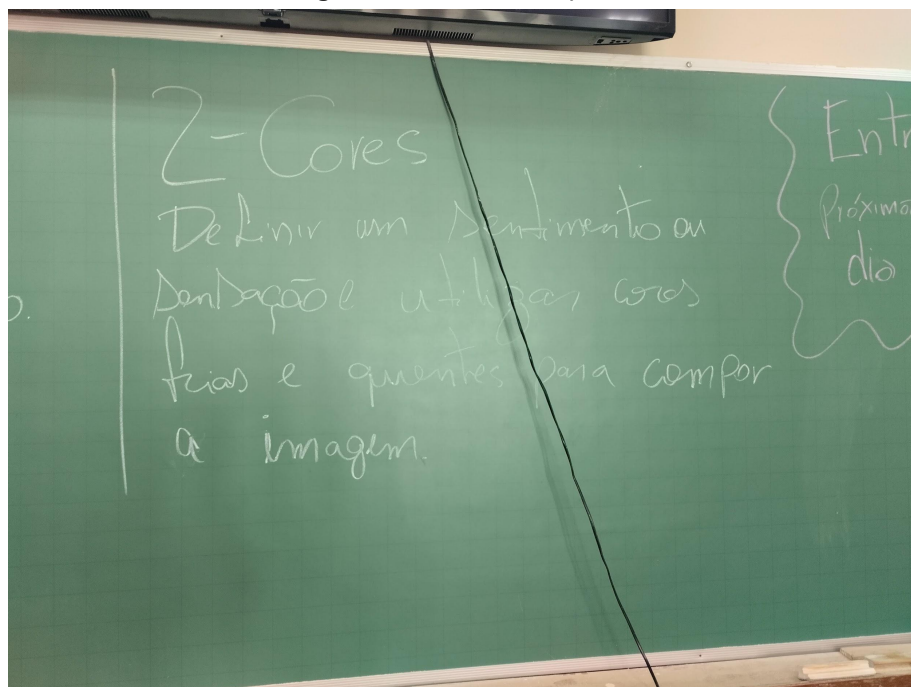 2- Cores
Definir um sentimento ou
sensação e utilizar cores
frias e quentes para compor
a imagem.
Entr
Próximo
dia